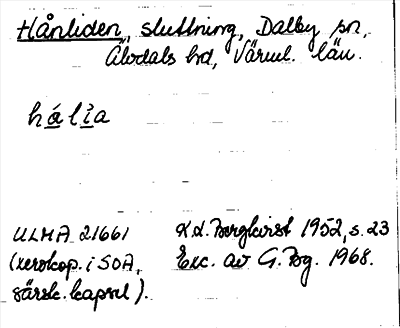 Hånliden, sluttning, Dalby sn,
Älvdals hd, Värml. län.
hália
ULMA 21661
(xerokop. i SOA,
särsk. kapsel).
K.d. Bergkvist 1952, s. 23
Exc. av G. Bg. 1968.